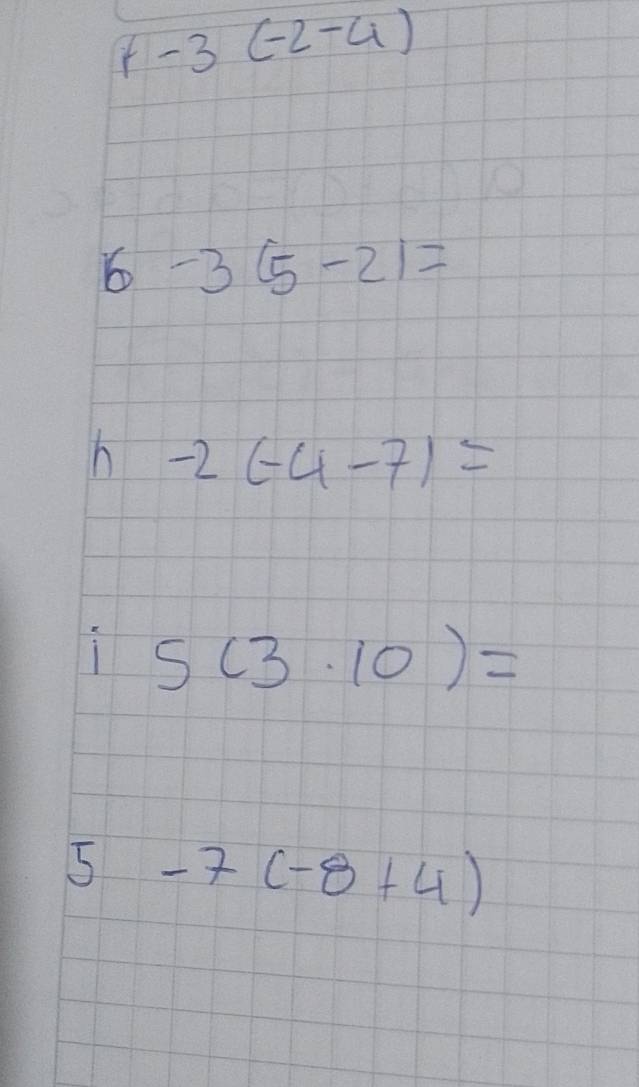 f -3 (-2-4)
6 -3 (5 -2) =
h -2 (-4 -7) =
i 5 (3 . 10) =
5 -7 (-8 + 4)